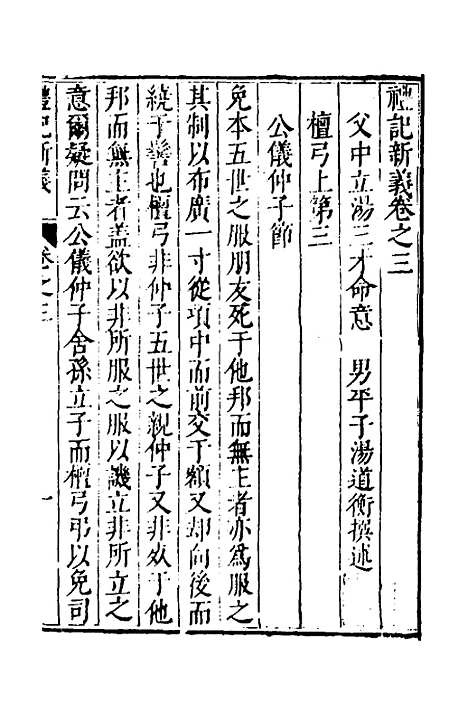 禮記新義卷之三
父中立湯三才命意　男平子湯道衡撰述
檀弓上第三
公儀仲子節
免本五世之服朋友死于他邦而無主者亦爲服之
其制以布廣一寸從項中而前交于額又却向後而
繞于髻也檀弓非仲子五世之親仲子又非死于他
邦而無主者盖欲以非所服之服以譏立非所立之
意爾疑問云公儀仲子舍孫立子而檀弓弔以免司
禮記新義
卷之三
一